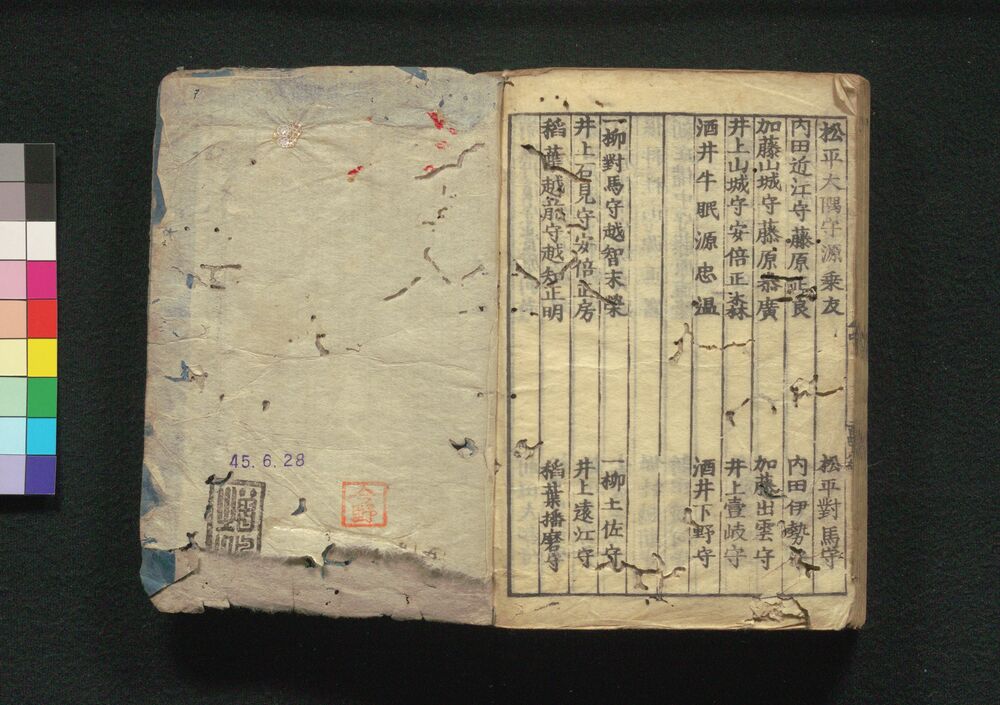 松平大隅守源乗友　松平對馬守
内田近江守藤原正良　内田伊勢守
加藤山城守藤原泰廣　加藤出雲守
井上山城守安倍正森　井上壹岐守
酒井牛眠源忠温　酒井下野守
一柳對馬守越智末榮　一柳土佐守
井上石見守安倍正房　井上遠江守
稲葉越前守越知正明　稲葉播磨守
7
45.6.28